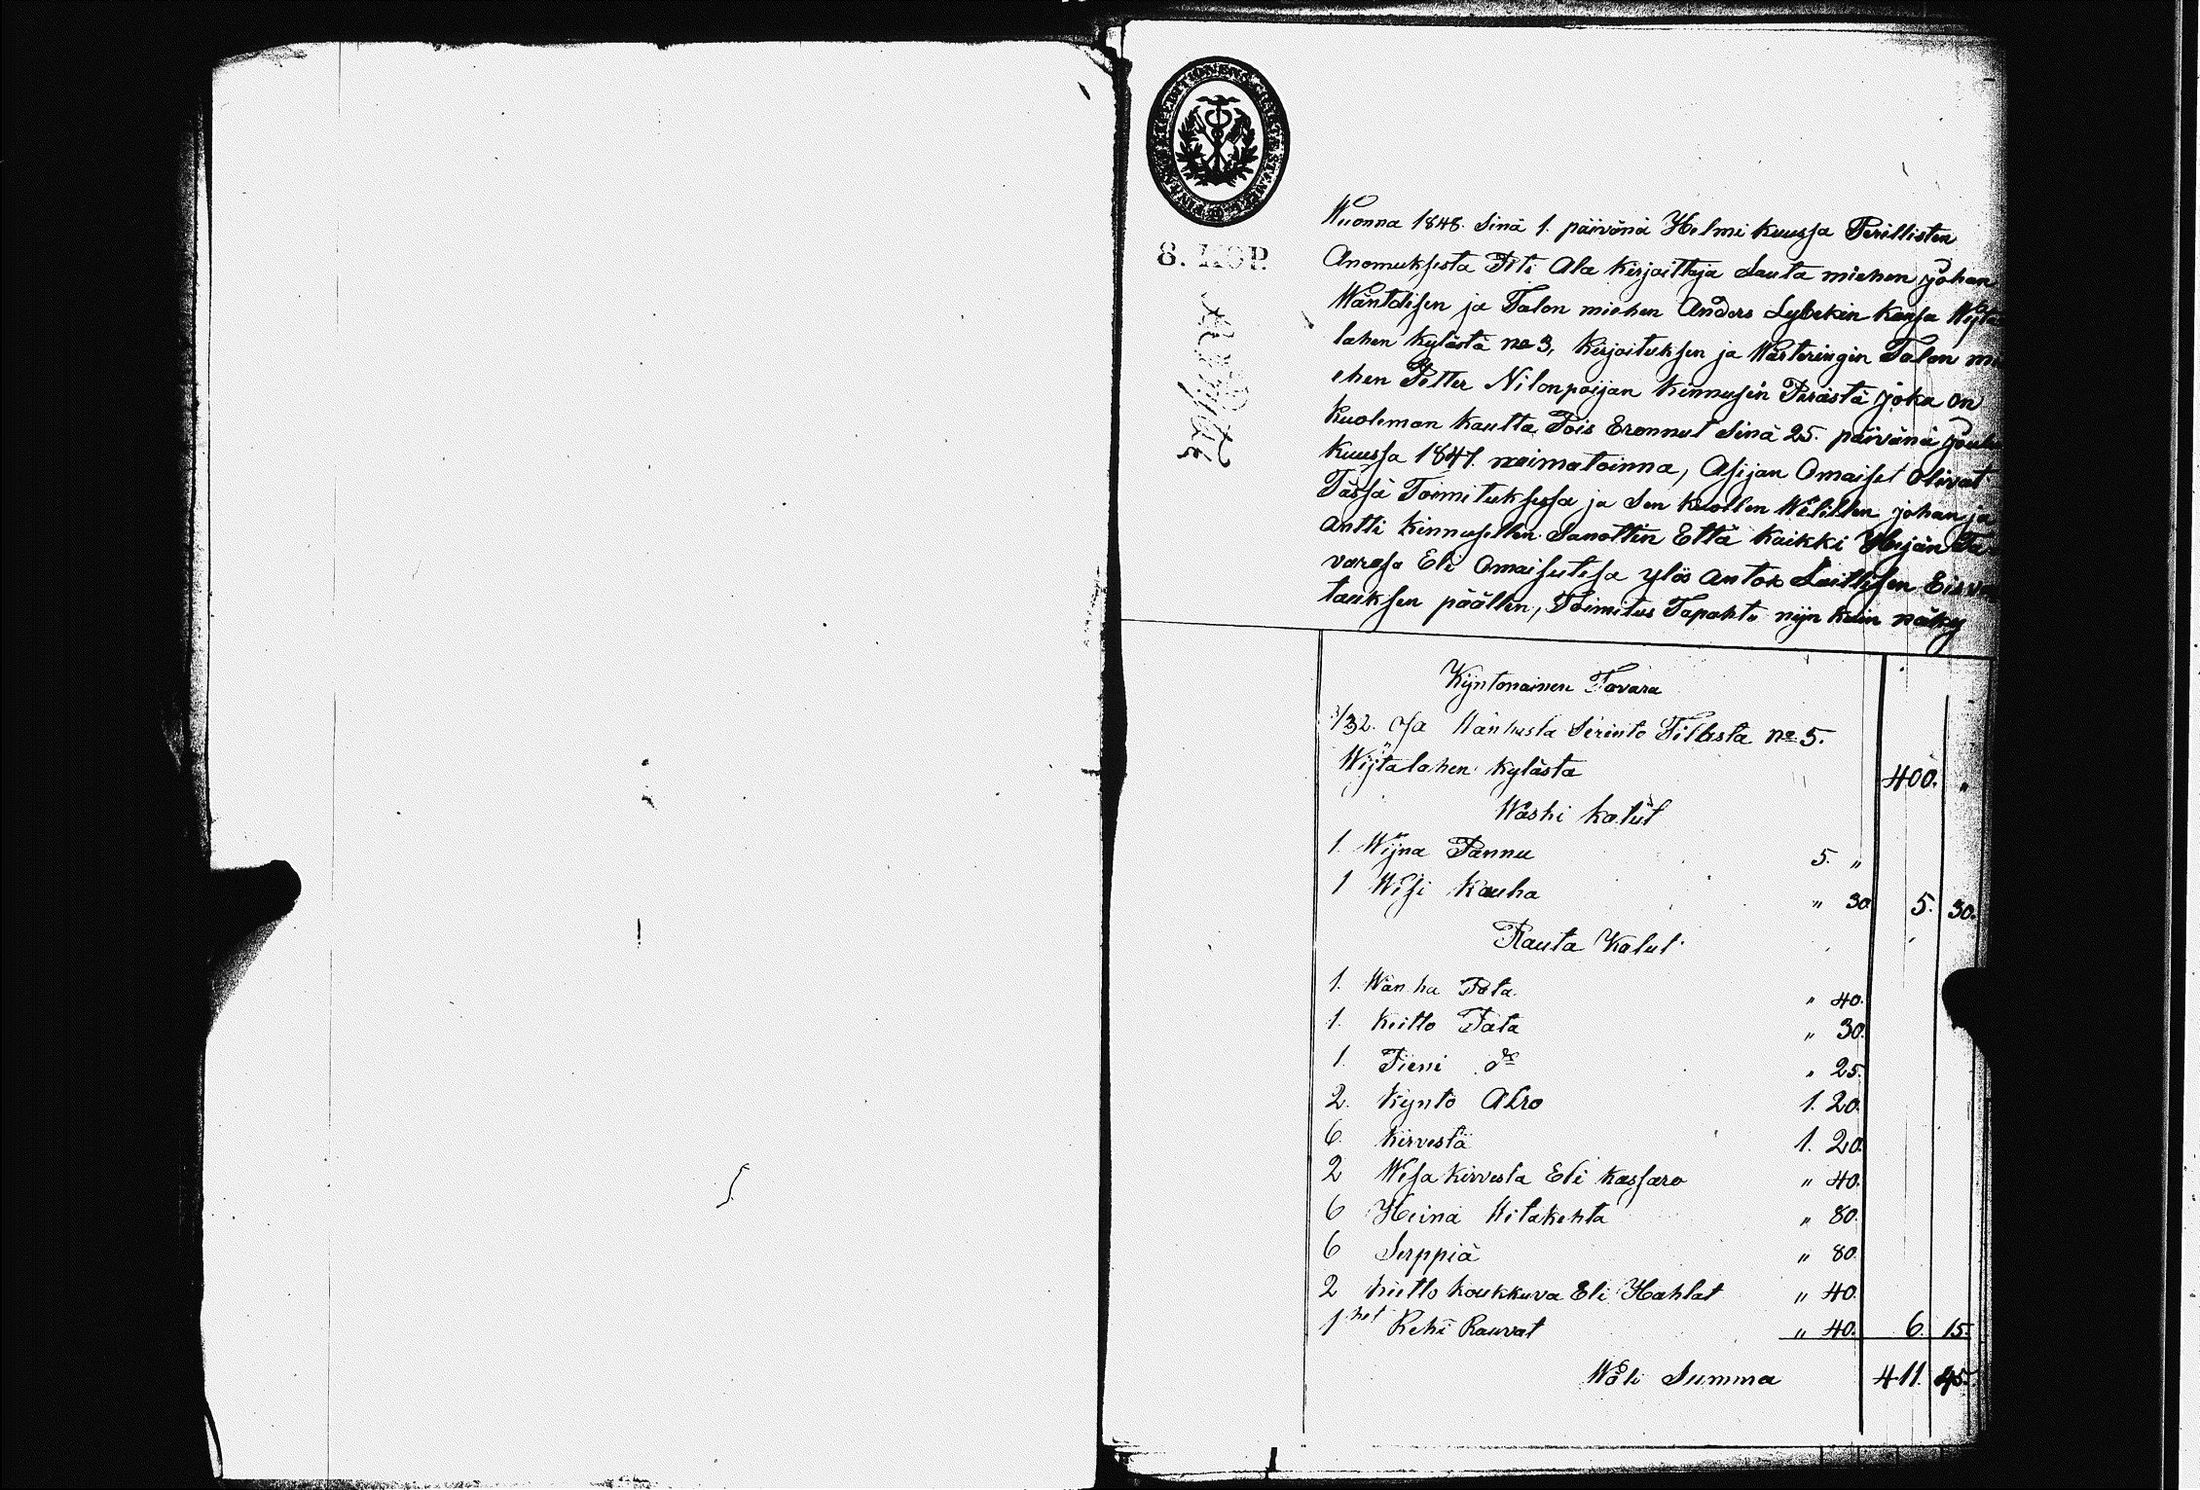 8. KOP.
Wuonna 1848. Sinä 1. päivänä Helmi kuussa Perillisten
Anomuksesta Piti Ala kirjoittaja Lauta miehen Johan
Wäntäisen ja Talon miehen Anders Lybekin kansa Wijta
lahen kylästä no 3, Kirjoituksen ja Wärteringin Talon mi
ehen Petter Nilonpoijan Kinnusen Perästä joka on
Kuoleman kautta Pois Eronnut Sinä 25. päivänä Joulu
kuussa 1847. naimatoinna, Asijan Omaiset Olivat
Tässä Toimituksessa ja Sen kuollen Welillen Johan ja
Antti Kinnusellen Sanottin Että kaikki Heijän Ta
varasa Eli Omaisutesa ylös antok Laillisen Eisva
tauksen päällen, Toimitus Tapahtu nijn kuin näky
Kijntonainen Tavara
3/32. osa Manhusta Perinto Tilasta no 5.
Wijtalahen kylästa 400. "
Waski kalut
1. Wijna Pannu 5. "
1 Wesi Kauha " 30 5. 30.
Rauta Kalut
1. Wanha Pata " 40.
1. Keitto Pata " 30.
1. Pieni do " 25.
2. Kynto Atro 1. 20.
6. Kirvestä 1. 20.
2 Wesa kirvesta Eli kassara " 40.
6 Heinä Witakehta " 80.
6 Serppiä " 80.
2 keitto koukkuva Eli Hahlat " 40.
1 het Reki Rauvat " 40. 6. 15.
Wäli Summa 411. 45.